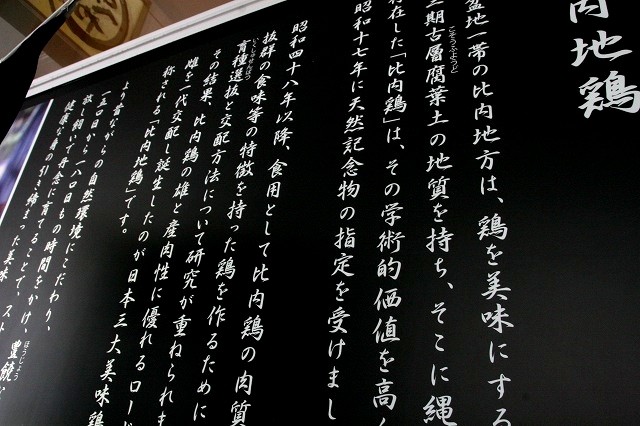 内地鶏
盆地一帯の比内地方は、鶏を美味にする
三期古層腐葉土の地質を持ち、そこに縄
こそうふようど
存在した「比内鶏」は、その学術的価値を高く
昭和十七年に天然記念物の指定を受けまし
昭和四十八年以降、食用として比内鶏の肉質
抜群の食味等の特徴を持った鶏を作るために
育種選抜と交配方法について研究が重ねられま
いくしゅせんばつ
その結果、比内鶏の雄と産肉性に優れるロード
雌を一代交配し誕生したのが日本三大美味鶏
称される「比内地鶏」です。
より昔ながらの自然環境にこだわり、
一五〇日から一八〇日もの時間をかけ、
放し飼いで丹念に育てることで、スト
健康な鶏の引き締まった美味
豊饒
ほうじょう